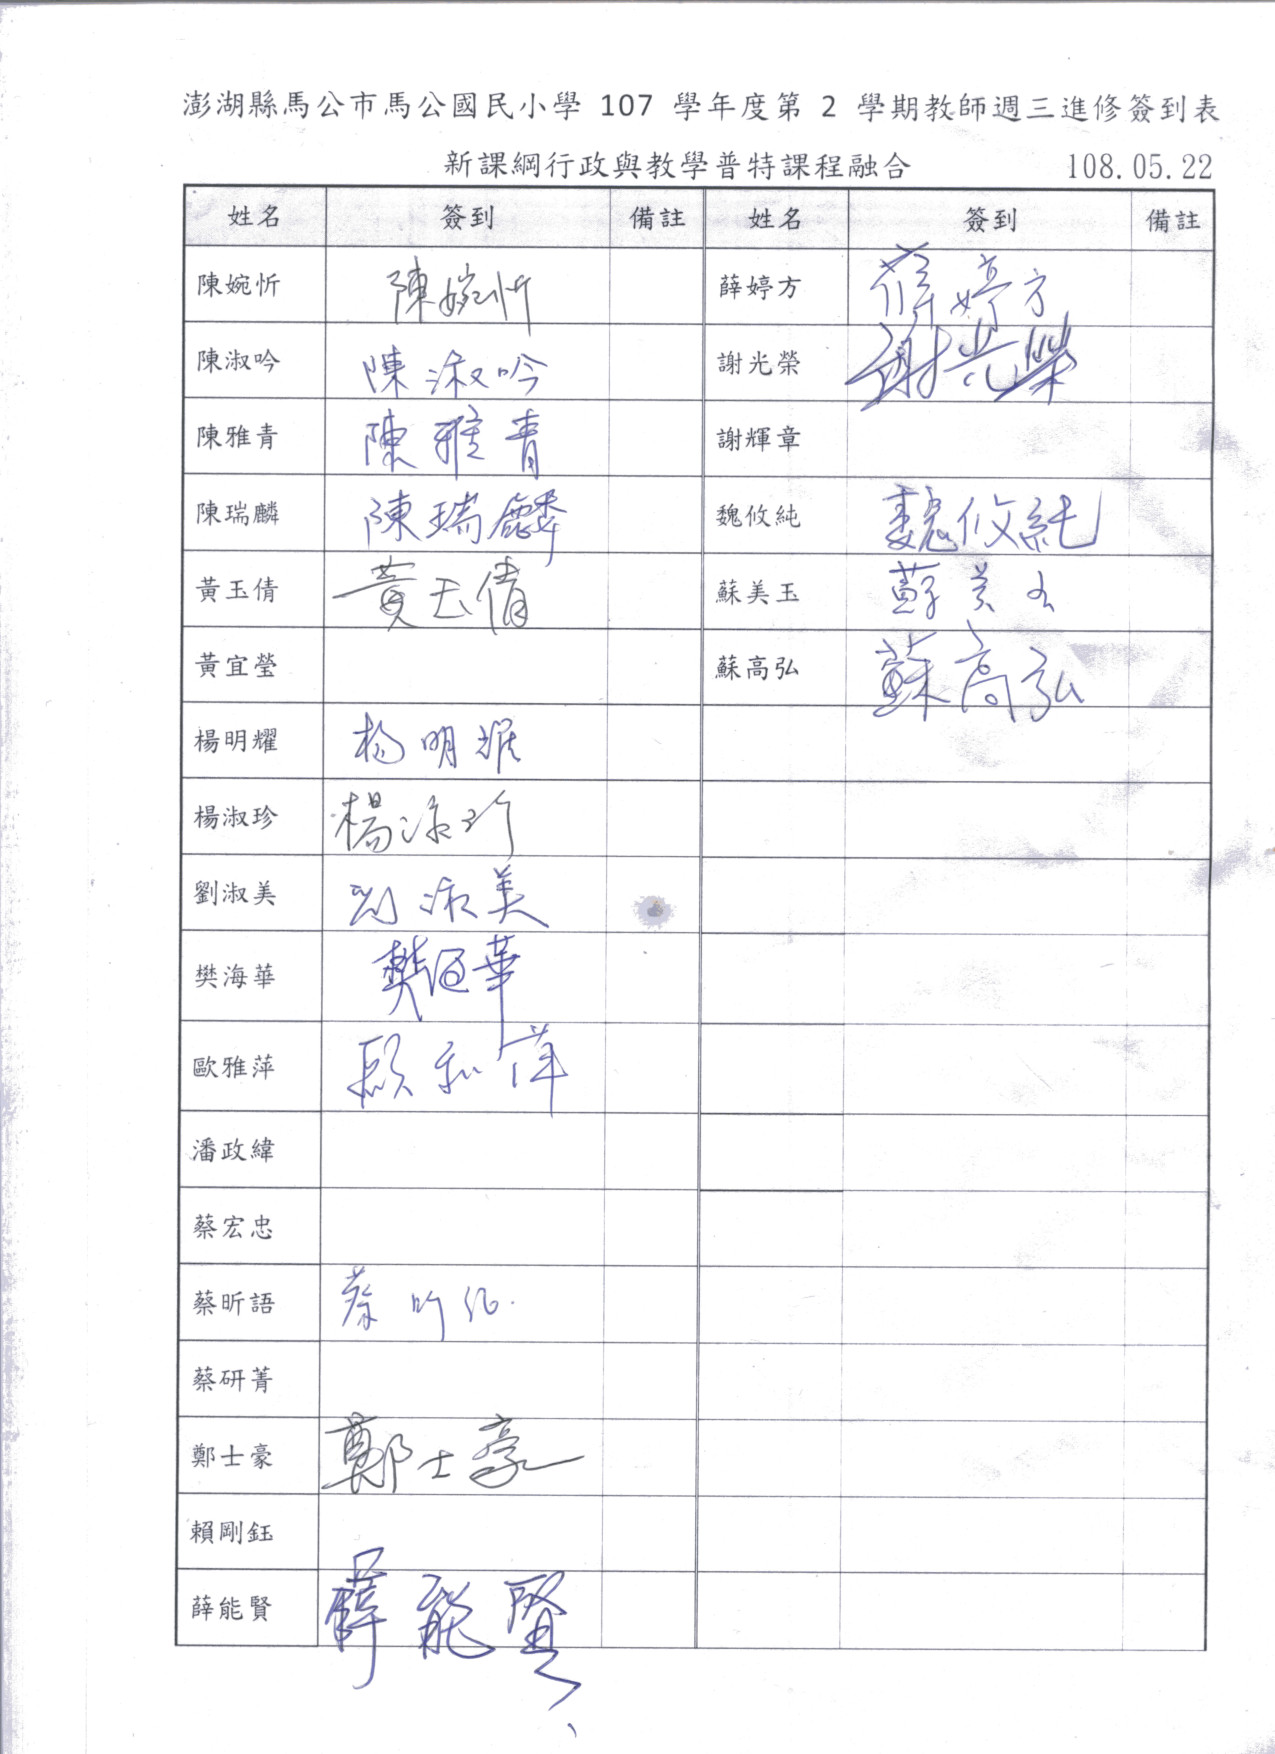 澎湖縣馬公市馬公國民小學 107 學年度第 2 學期教師週三進修簽到表
新課綱行政與教學普特課程融合 108.05.22
姓名 簽到 備註 姓名 簽到 備註
陳婉忻 陳婉忻 薛婷方 薛婷方
陳淑吟 陳淑吟 謝光榮 謝光榮
陳雅青 陳雅青 謝輝章
陳瑞麟 陳瑞麟 魏攸純 魏攸純
黃玉倩 黃玉倩 蘇美玉 蘇美玉
黃宜瑩 蘇高弘 蘇高弘
楊明耀 楊明耀
楊淑珍 楊淑珍
劉淑美 劉淑美
樊海華 樊海華
歐雅萍
潘政緯
蔡宏忠
蔡昕語 蔡昕語
蔡研菁
鄭士豪 鄭士豪
賴剛鈺
薛能賢 薛能賢